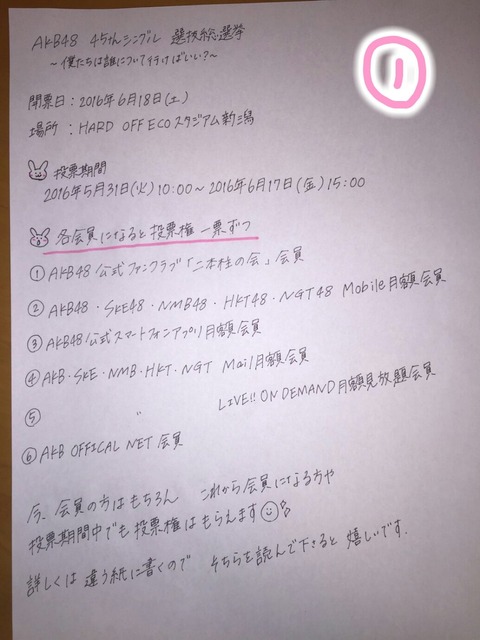 ①
AKB48 45thシングル 選抜総選挙
〜僕たちは誰について行けばいい?〜
開票日：2016年6月18日(土)
場所：HARD OFF ECOスタジアム新潟
投票期間
2016年5月31日(火) 10:00〜2016年6月17日(金) 15:00
各会員になると投票権 一票ずつ
① AKB48公式ファンクラブ「二本柱の会」会員
② AKB48・SKE48・NMB48・HKT48・NGT48 Mobile月額会員
③ AKB48公式スマートフォンアプリ月額会員
④ AKB・SKE・NMB・HKT・NGT Mail月額会員
⑤ 〃 LIVE!! ON DEMAND月額見放題会員
⑥ AKB OFFICAL NET 会員
今、会員の方はもちろん これから会員になる方や
投票期間中でも投票権はもらえます☺
詳しくは違う紙に書くので そちらを読んで下さると嬉しいです.